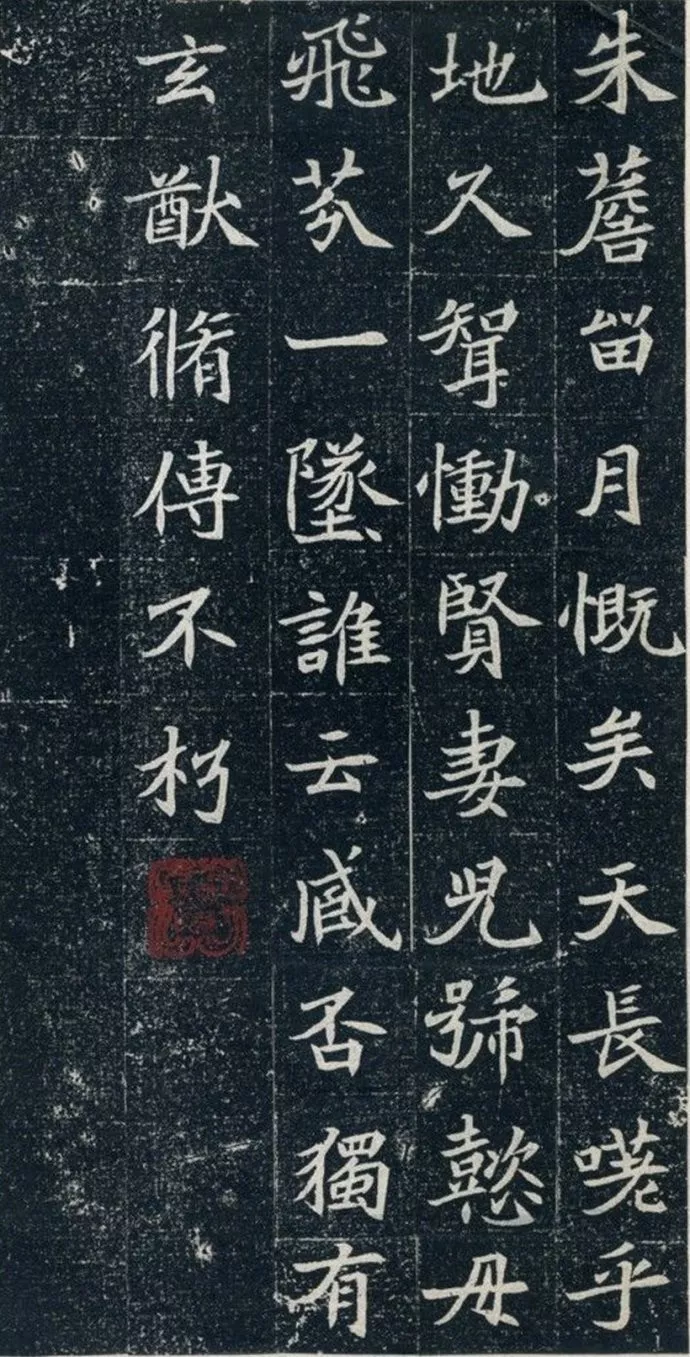 朱薝畄月慨矣天長嗟乎
地久聟慟賢妻兒號懿母
飛芬一墜誰云臧否獨有
玄猷脩傳不朽